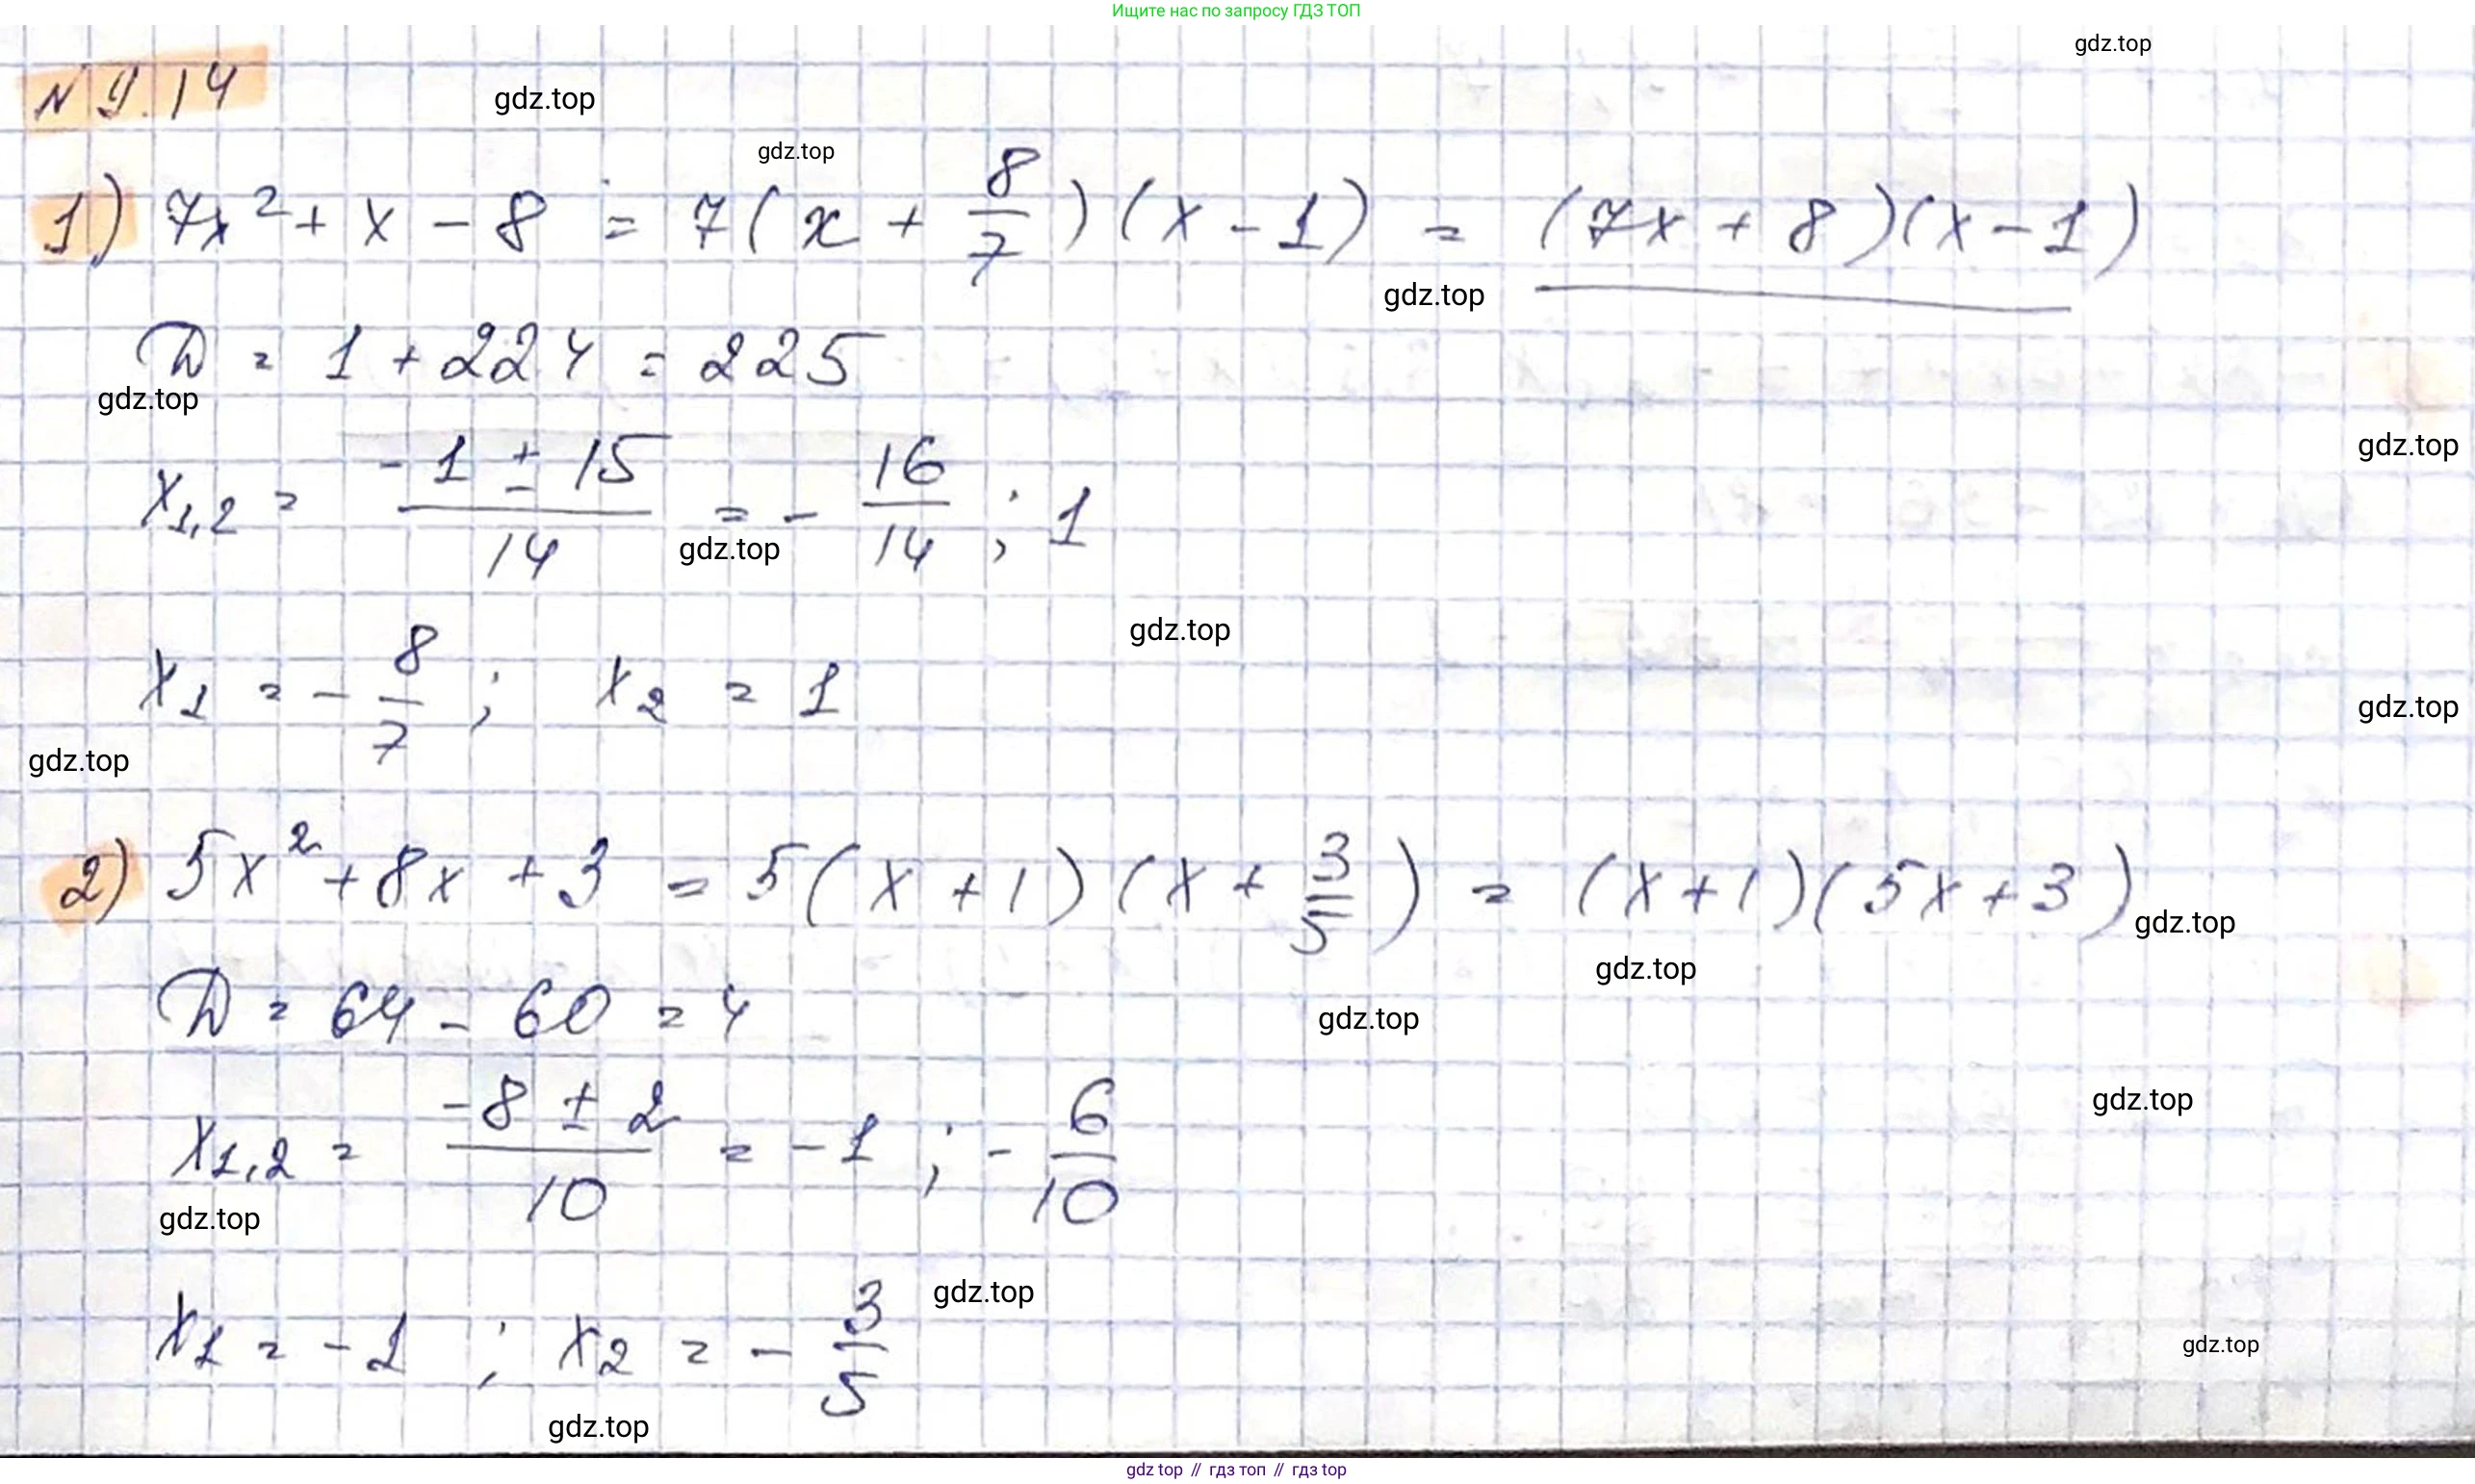 Ищите нас по запросу ГДЗ ТОП
gdz.top
N 9.14
gdz.top
gdz.top
1) 7x² + x - 8 = 7(x + 8/7)(x - 1) = (7x + 8)(x - 1)
gdz.top
D = 1 + 224 = 225
gdz.top
gdz.top
x₁,₂ = (-1 ± 15)/14 = - 16/14 ; 1
gdz.top
gdz.top
x₁ = - 8/7 ; x₂ = 1
gdz.top
gdz.top
2) 5x² + 8x + 3 = 5(x + 1)(x + 3/5) = (x + 1)(5x + 3)
gdz.top
gdz.top
D = 64 - 60 = 4
gdz.top
gdz.top
x₁,₂ = (-8 ± 2)/10 = -1 ; - 6/10
gdz.top
gdz.top
x₁ = -1 ; x₂ = - 3/5
gdz.top
gdz.top
gdz top // гдз топ // гдз top